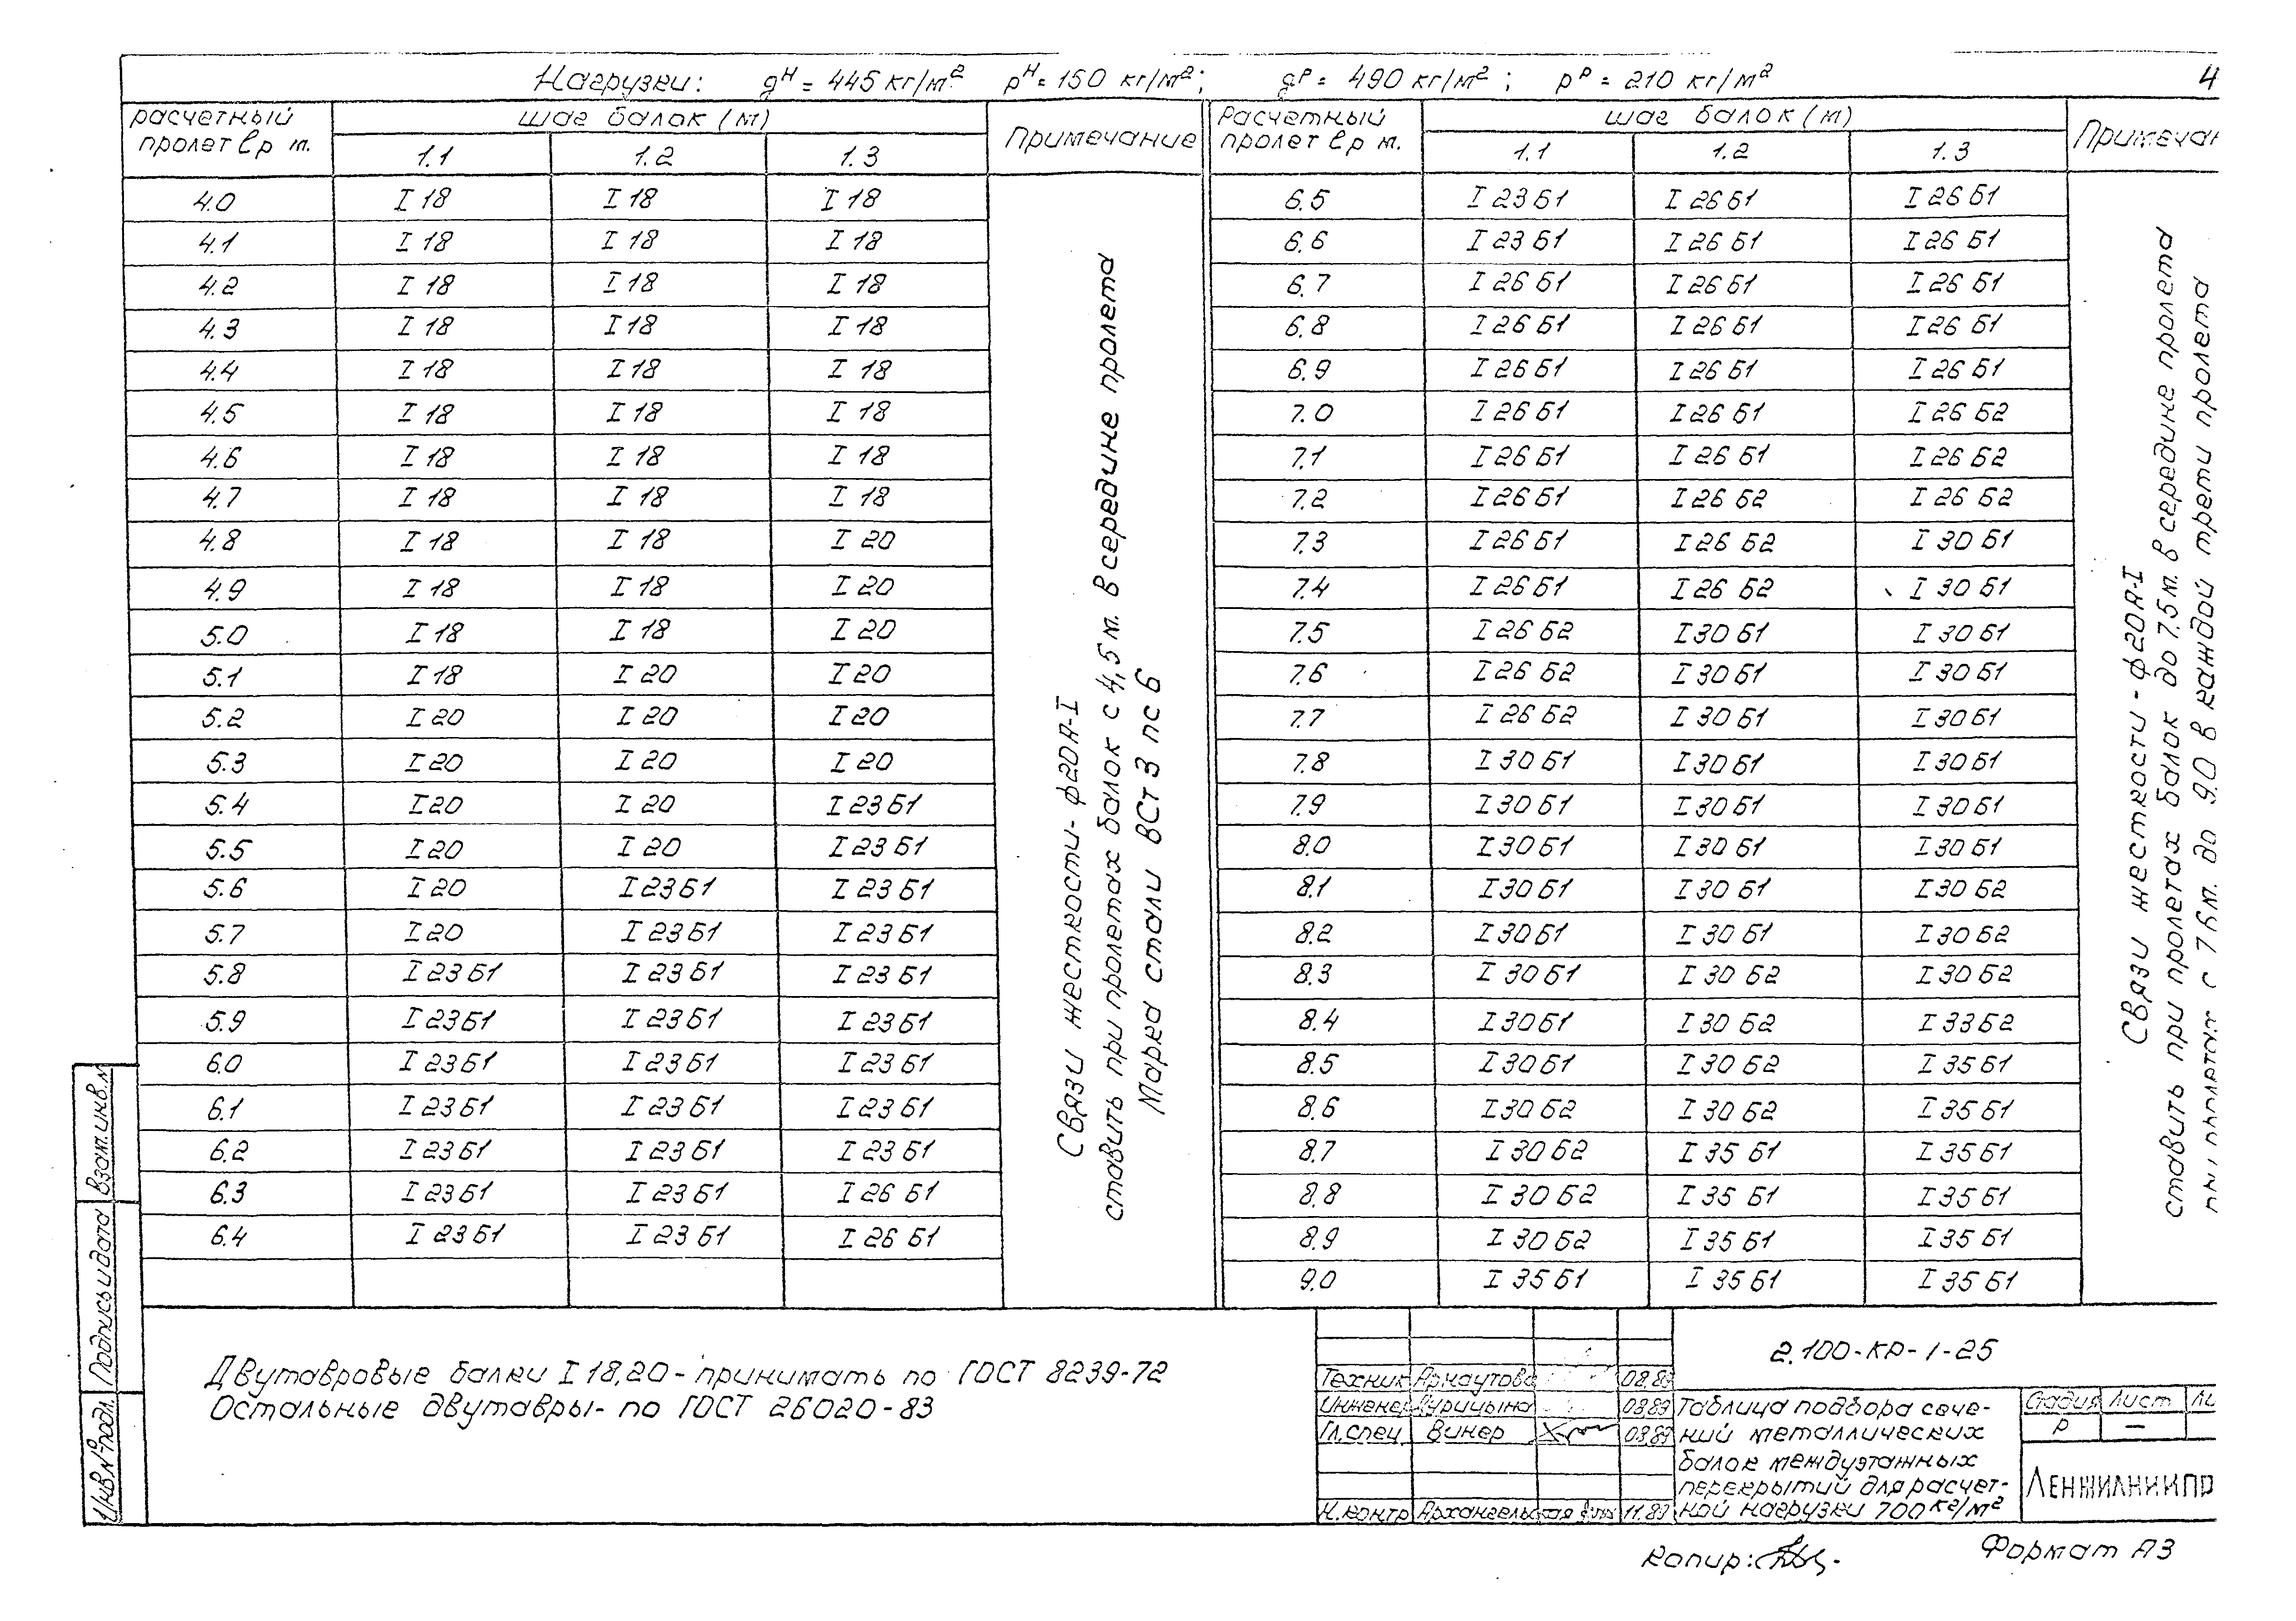 Нагрузки: gᴴ = 445 кг/м² pᴴ = 150 кг/м²; gᴾ = 490 кг/м²; pᴾ = 210 кг/м² 4
расчетный пролет ℓр м. шаг балок (м) Примечание Расчетный пролет ℓр м. шаг балок (м) Примечан
1.1 1.2 1.3 1.1 1.2 1.3
4.0 I 18 I 18 I 18 6.5 I 23 Б1 I 26 Б1 I 26 Б1
4.1 I 18 I 18 I 18 6.6 I 23 Б1 I 26 Б1 I 26 Б1
4.2 I 18 I 18 I 18 6.7 I 26 Б1 I 26 Б1 I 26 Б1
4.3 I 18 I 18 I 18 6.8 I 26 Б1 I 26 Б1 I 26 Б1
4.4 I 18 I 18 I 18 6.9 I 26 Б1 I 26 Б1 I 26 Б1
4.5 I 18 I 18 I 18 7.0 I 26 Б1 I 26 Б1 I 26 Б2
4.6 I 18 I 18 I 18 7.1 I 26 Б1 I 26 Б1 I 26 Б2
4.7 I 18 I 18 I 18 7.2 I 26 Б1 I 26 Б2 I 26 Б2
4.8 I 18 I 18 I 20 7.3 I 26 Б1 I 26 Б2 I 30 Б1
4.9 I 18 I 18 I 20 7.4 I 26 Б1 I 26 Б2 I 30 Б1
5.0 I 18 I 18 I 20 7.5 I 26 Б2 I 30 Б1 I 30 Б1
5.1 I 18 I 20 I 20 7.6 I 26 Б2 I 30 Б1 I 30 Б1
5.2 I 20 I 20 I 20 7.7 I 26 Б2 I 30 Б1 I 30 Б1
5.3 I 20 I 20 I 20 7.8 I 30 Б1 I 30 Б1 I 30 Б1
5.4 I 20 I 20 I 23 Б1 7.9 I 30 Б1 I 30 Б1 I 30 Б1
5.5 I 20 I 20 I 23 Б1 8.0 I 30 Б1 I 30 Б1 I 30 Б1
5.6 I 20 I 23 Б1 I 23 Б1 8.1 I 30 Б1 I 30 Б1 I 30 Б2
5.7 I 20 I 23 Б1 I 23 Б1 8.2 I 30 Б1 I 30 Б1 I 30 Б2
5.8 I 23 Б1 I 23 Б1 I 23 Б1 8.3 I 30 Б1 I 30 Б2 I 30 Б2
5.9 I 23 Б1 I 23 Б1 I 23 Б1 8.4 I 30 Б1 I 30 Б2 I 33 Б2
6.0 I 23 Б1 I 23 Б1 I 23 Б1 8.5 I 30 Б1 I 30 Б2 I 35 Б1
6.1 I 23 Б1 I 23 Б1 I 23 Б1 8.6 I 30 Б2 I 30 Б2 I 35 Б1
6.2 I 23 Б1 I 23 Б1 I 23 Б1 8.7 I 30 Б2 I 35 Б1 I 35 Б1
6.3 I 23 Б1 I 23 Б1 I 26 Б1 8.8 I 30 Б2 I 35 Б1 I 35 Б1
6.4 I 23 Б1 I 23 Б1 I 26 Б1 8.9 I 30 Б2 I 35 Б1 I 35 Б1
9.0 I 35 Б1 I 35 Б1 I 35 Б1
Связи жесткости - ф20А-I
ставить при пролетах балок с 4,5 м. в середине пролета
Марка стали ВСт 3 пс 6
Связи жесткости - ф20А-I
ставить при пролетах балок до 7.5 м. в середине пролета
при пролетах с 7.6 м. до 9.0 в каждой трети пролета
Двутавровые балки I 18, 20 - принимать по ГОСТ 8239-72
Остальные двутавры - по ГОСТ 26020-83
Взам.инв.№
Подпись и дата
Инв.№подл.
2.100-КР-1-25
Техник Арнаутова 08.89
Инженер 08.89
Гл.спец. Винер 08.89
Н.контр Архангельская 11.89
Таблица подбора сече-
ний металлических
балок междуэтажных
перекрытий для расчет-
ной нагрузки 700 кг/м²
Стадия Лист Ли
Р —
ЛЕНЖИЛНИИПР
Копир:
Формат А3